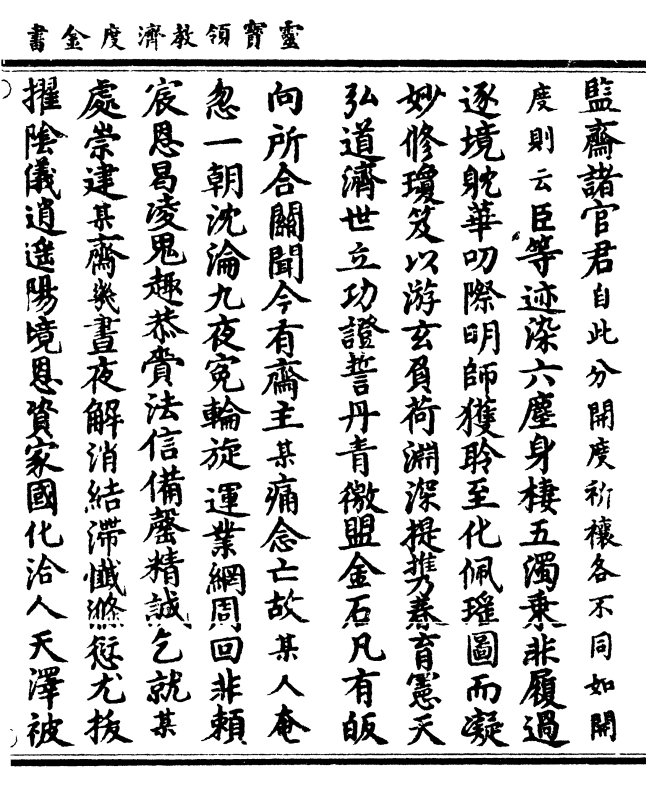 靈寶領教濟度金書
監齋諸官君自此分開度祈禳各不同如開
度則云臣等迹染六塵身棲五濁乗非履過
逐境躭華叨際明師獲聆至化佩瑤圖而凝
妙修瓊笈以游玄負荷淵深提㩗育憲天
弘道濟世立功證誓丹青徼盟金石凡有皈
向所合關聞今有齋主某痛念亡故某人奄
忽一朝沈淪九夜寃輪旋運業網周回非頼
宸恩曷凌鬼趣恭賫法信備罄精誠乞就某
處崇建某齋幾晝夜解消結滯懺滌愆尤拔
擢陰儀逍遥陽境恩資家國化洽人天澤被